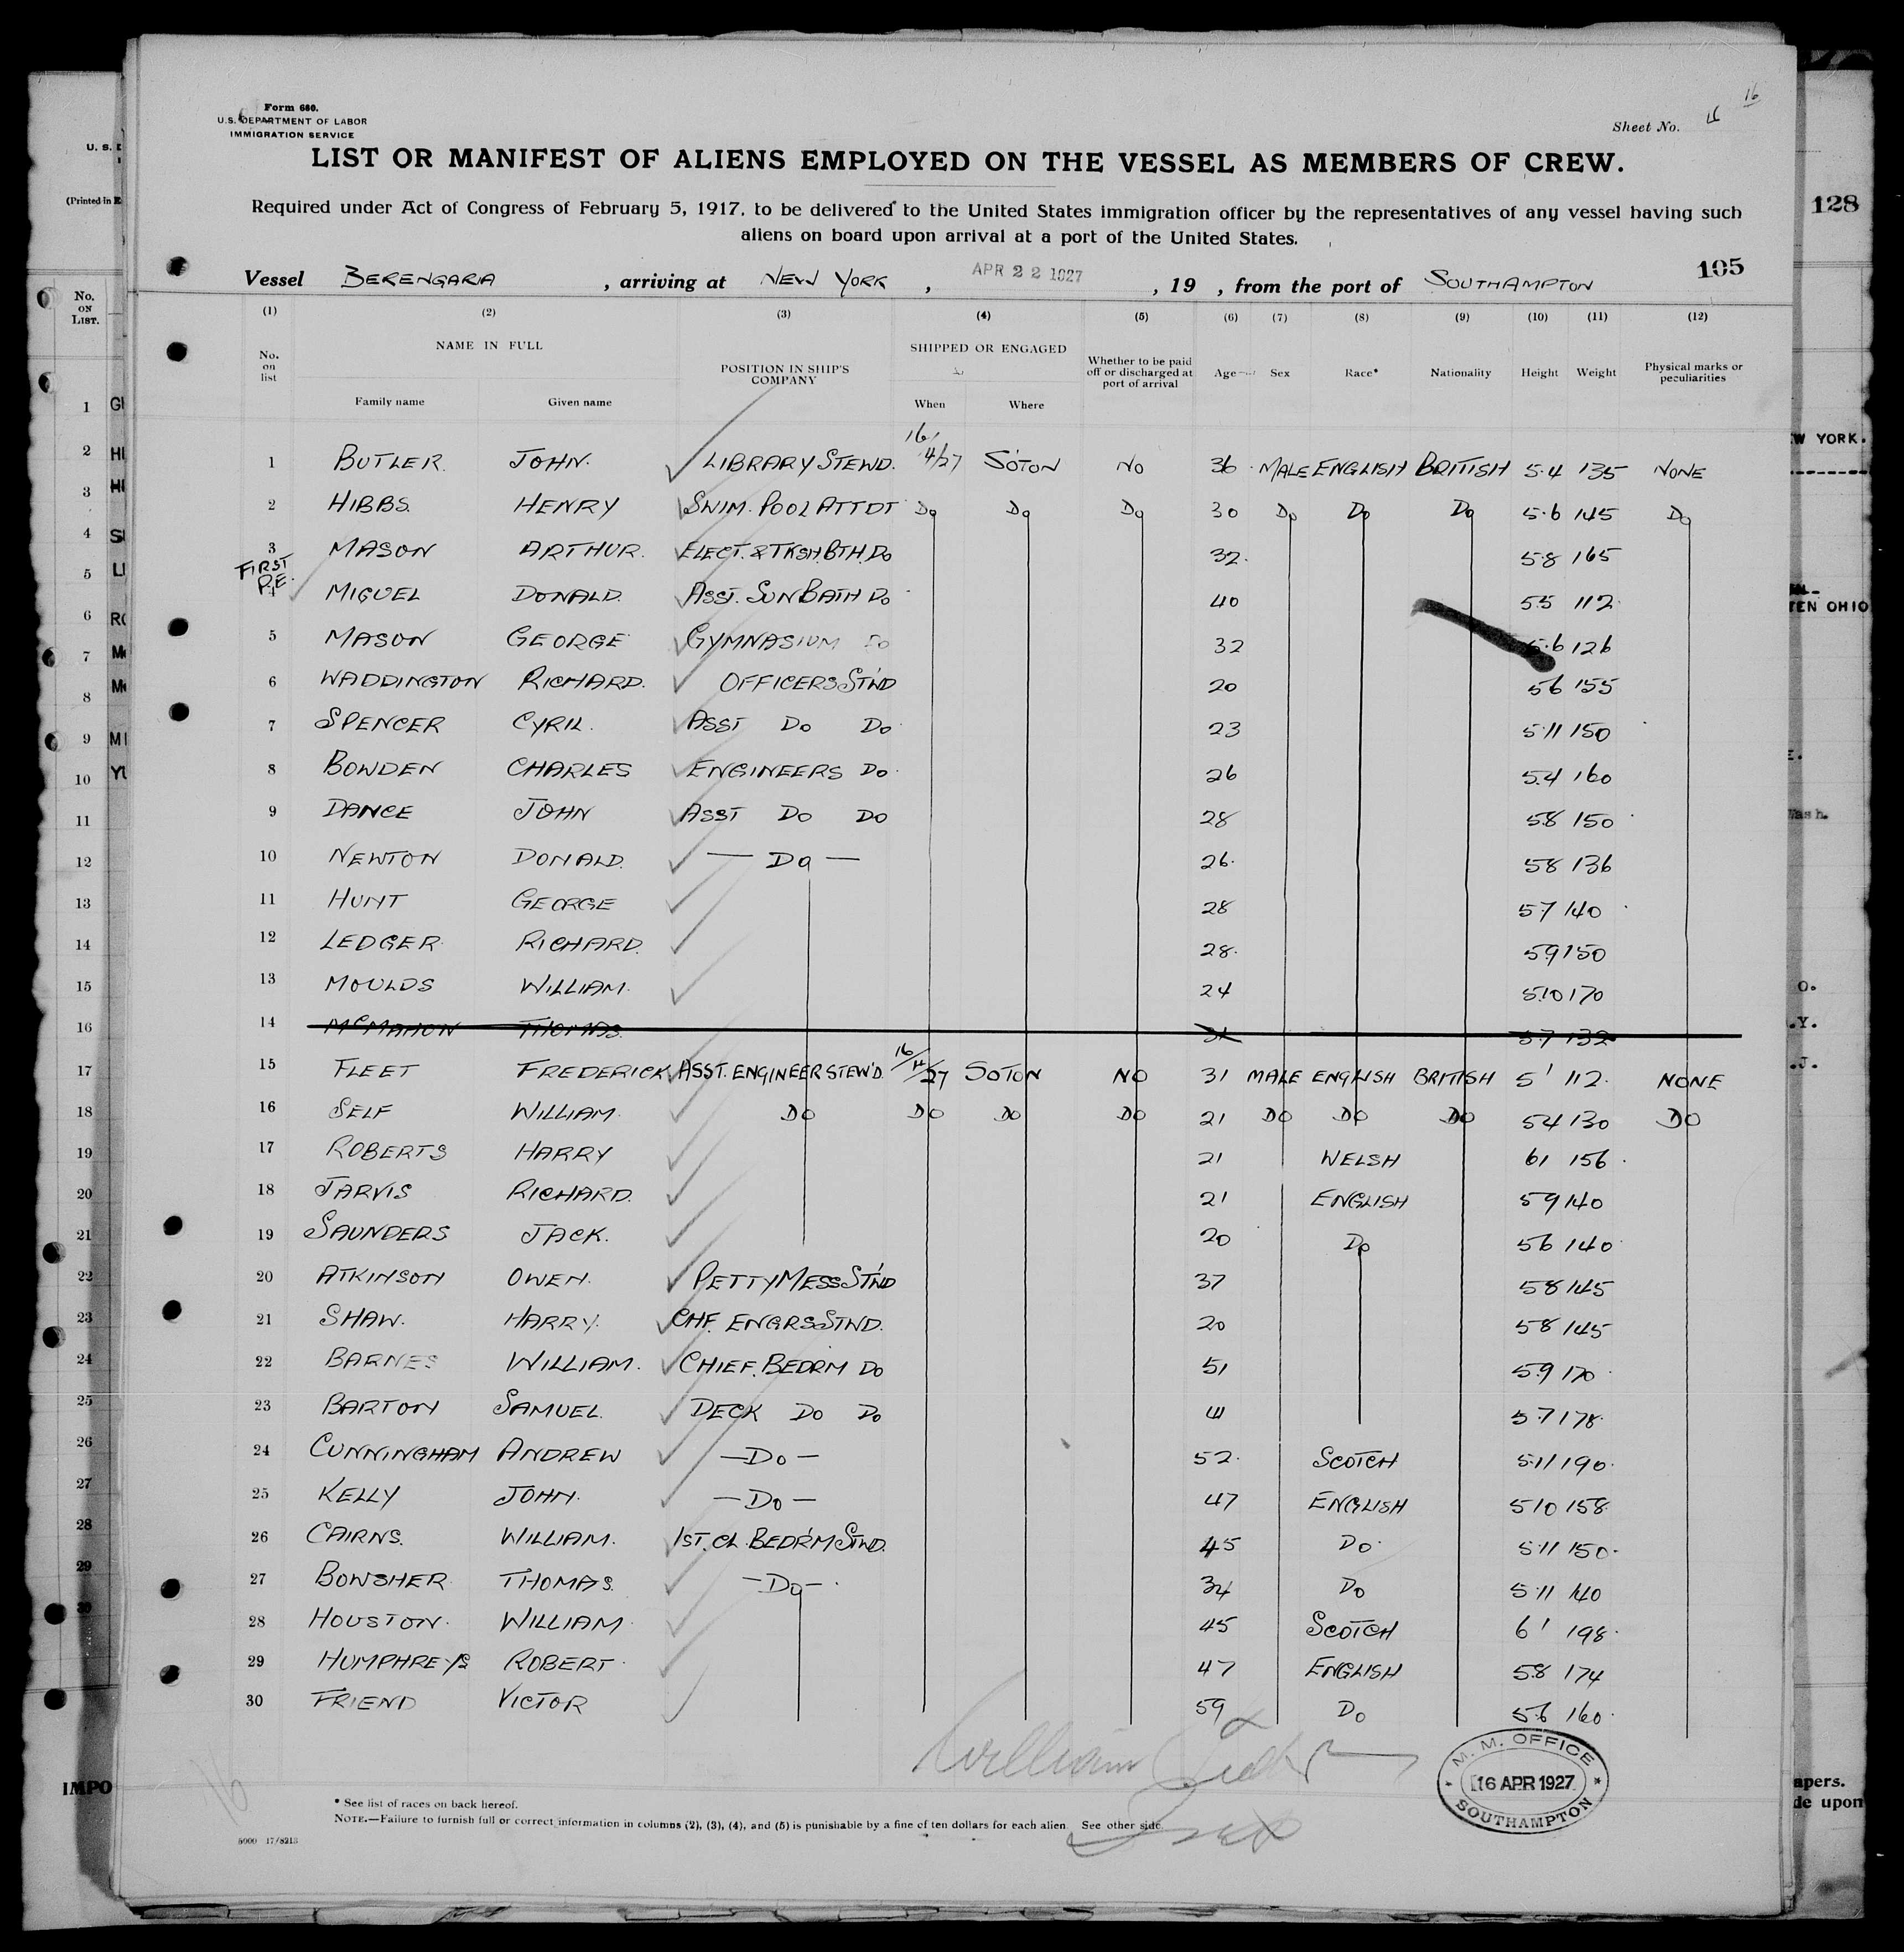 Form 680.
U.S. DEPARTMENT OF LABOR
IMMIGRATION SERVICE
Sheet No. 16
LIST OR MANIFEST OF ALIENS EMPLOYED ON THE VESSEL AS MEMBERS OF CREW.
Required under Act of Congress of February 5, 1917, to be delivered to the United States immigration officer by the representatives of any vessel having such
aliens on board upon arrival at a port of the United States.
105
Vessel BERENGARIA, arriving at NEW YORK, APR 22 1927, 19 , from the port of SOUTHAMPTON
(1) (2) (3) (4) (5) (6) (7) (8) (9) (10) (11) (12)
No. on list NAME IN FULL POSITION IN SHIP'S COMPANY SHIPPED OR ENGAGED Whether to be paid off or discharged at port of arrival Age Sex Race* Nationality Height Weight Physical marks or peculiarities
Family name Given name When Where
1 BUTLER. JOHN. LIBRARY STEWD. 16/4/27 SOTON NO 36 MALE ENGLISH BRITISH 5.4 135 NONE
2 HIBBS. HENRY SWIM. POOL ATTDT Do Do Do 30 Do Do Do 5.6 145 Do
3 MASON ARTHUR. ELECT. & TKSH. BTH. Do 32. 5.8 165
FIRST P.E.
4 MIGUEL DONALD. ASST. SUN BATH Do 40 5.5 112
5 MASON GEORGE GYMNASIUM Do 32 5.6 126
6 WADDINGTON RICHARD. OFFICERS STWD 20 56 155
7 SPENCER CYRIL. ASST Do Do 23 5.11 150
8 BOWDEN CHARLES ENGINEERS Do. 26 5.4 160
9 DANCE JOHN ASST Do Do 28 5.8 150
10 NEWTON DONALD. — Do — 26. 58 136
11 HUNT GEORGE 28 5.7 140
12 LEDGER. RICHARD. 28. 59 150
13 MOULDS WILLIAM. 24 5.10 170
14 McMAHON THOMAS. 31 5.7 132
15 FLEET FREDERICK ASST. ENGINEER STEW'D. 16/4/27 SOTON NO 31 MALE ENGLISH BRITISH 5' 112. NONE
16 SELF WILLIAM. DO DO DO DO 21 DO DO DO 54 130 DO
17 ROBERTS HARRY 21 WELSH 61 156
18 JARVIS RICHARD. 21 ENGLISH 59 140
19 SAUNDERS JACK. 20 Do 56 140
20 ATKINSON OWEN. PETTY MESS STWD 37 58 145
21 SHAW. HARRY. CHF. ENGRS STWD. 20 58 145
22 BARNES WILLIAM. CHIEF. BEDRM Do 51 5.9 170
23 BARTON SAMUEL. DECK Do Do 5.7 178.
24 CUNNINGHAM ANDREW — Do — 52. SCOTCH 5.11 190.
25 KELLY JOHN. — Do — 47 ENGLISH 510 158.
26 CAIRNS. WILLIAM. 1ST. CL. BEDR'M STWD. 45 Do. 5.11 150.
27 BOWSHER THOMAS. — Do — 34 Do 5.11 140
28 HOUSTON. WILLIAM. 45 SCOTCH 6' 198.
29 HUMPHREYS ROBERT. 47 ENGLISH 5.8 174
30 FRIEND VICTOR 59 Do 5.6 160.
William
M. M. OFFICE
16 APR 1927
SOUTHAMPTON
* See list of races on back hereof.
NOTE.—Failure to furnish full or correct information in columns (2), (3), (4), and (5) is punishable by a fine of ten dollars for each alien. See other side.
128
No. ON LIST.
(Printed in
IMPO
W YORK.
TEN OHIO
apers.
de upon